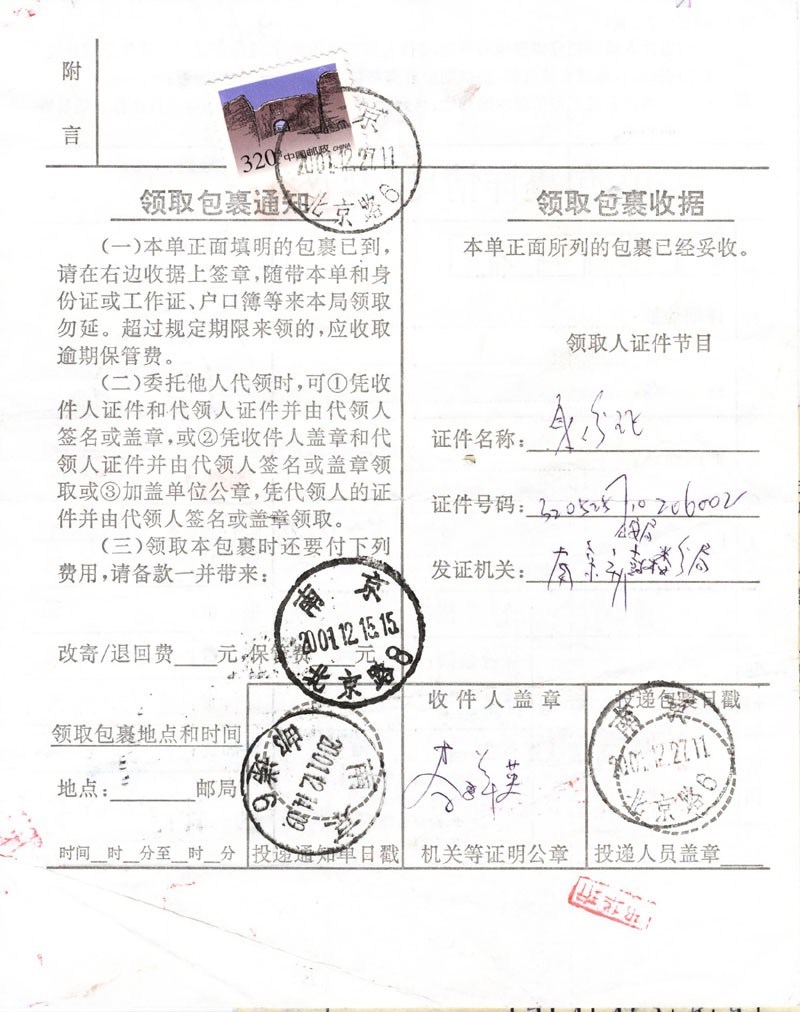 附
言
320 中国邮政 CHINA
京
2001.12.27.11
北京路6
领取包裹通知
(一)本单正面填明的包裹已到,
请在右边收据上签章,随带本单和身
份证或工作证、户口簿等来本局领取
勿延。超过规定期限来领的,应收取
逾期保管费。
(二)委托他人代领时,可①凭收
件人证件和代领人证件并由代领人
签名或盖章,或②凭收件人盖章和代
领人证件并由代领人签名或盖章领
取或③加盖单位公章,凭代领人的证
件并由代领人签名或盖章领取。
(三)领取本包裹时还要付下列
费用,请备款一并带来:
南京
2001.12.15.15
北京路8
改寄/退回费___元,保管费___元
领取包裹地点和时间
地点:______邮局
时间__时__分至__时__分
南京
2001.12.14.09
投递通知单日戳
领取包裹收据
本单正面所列的包裹已经妥收。
领取人证件节目
证件名称:身份证
证件号码:320525710206002
发证机关:南京市鼓楼分局
公安局
收件人盖章
机关等证明公章
投递包裹日戳
南京
2001.12.27.11
北京路6
投递人员盖章